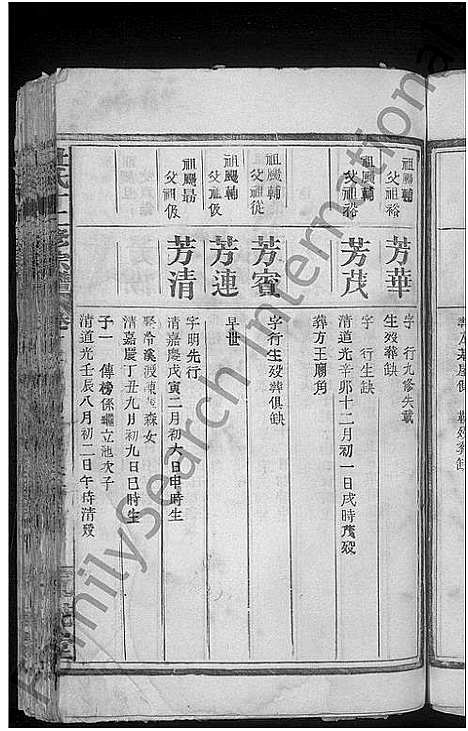 祖颺輔
父祖裕
芳華
字 行九修失載
生歿葬缺
祖颺輔
父祖裕
芳茂
字 行生缺
清道光辛卯十二月初一日戌時茂歿
葬方王廟角
祖颺輔
父祖從
芳賓
字行生歿葬俱缺
祖颺輔
父祖伋
芳連
早世
祖颺最
父祖伋
芳清
字明先行
清嘉慶戊寅二月初六日申時生
娶冷溪 森女
清嘉慶丁丑九月初九日巳時生
子一 傳榜係繼立 次子
清道光壬辰八月初二日午時清歿
氏十一修宗譜
FamilySearch International